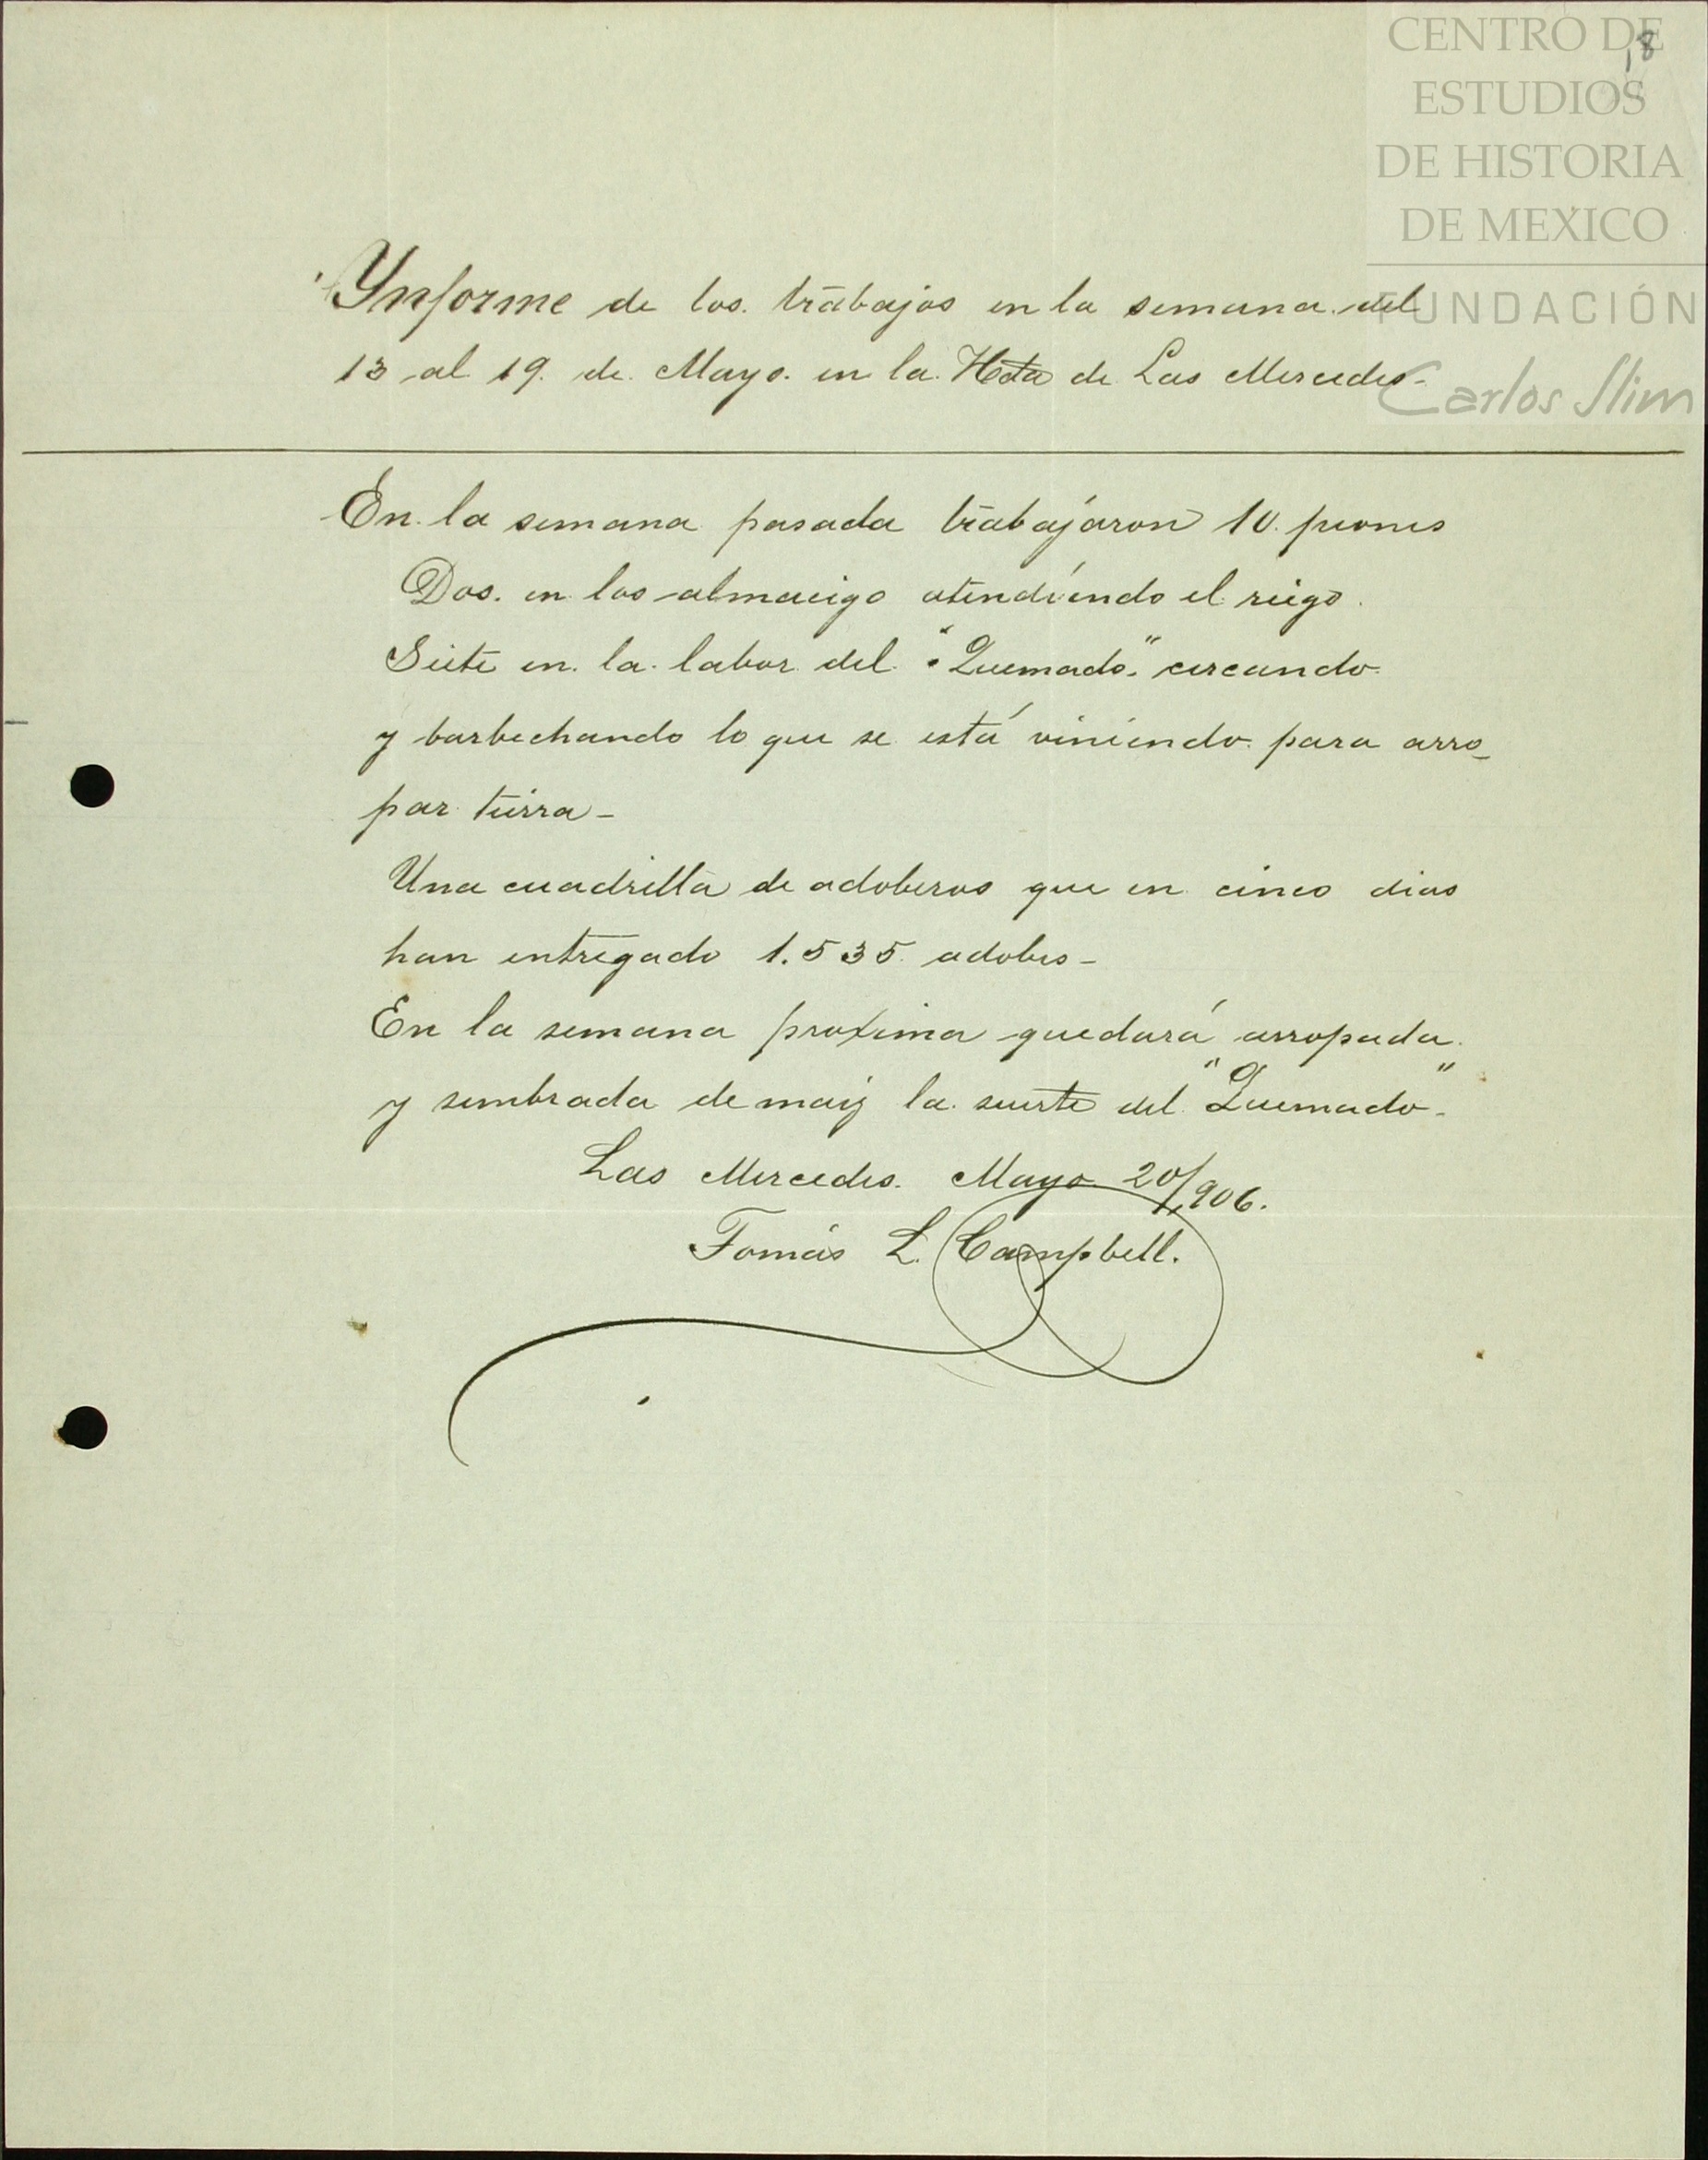 CENTRO DE
ESTUDIOS
DE HISTORIA
DE MEXICO
FUNDACIÓN
Carlos Slim
18
Ynforme de los. trabajos en la semana. del
13 al 19. de. Mayo. en la. Hda de Las Mercedes-
En. la semana pasada trabajáron 10. peones
Dos. en los almacigo atendiéndo el riego.
Siete en. la. labor del. "Quemado." cercando.
y barbechando lo que se está viniendo para arro_
par tierra-
Una cuadrilla de adoberos que en cinco dias
han entregado 1.535. adobes-
En la semana proxima quedará arropada.
y sembrada de maiz la. suerte del "Quemado"-
Las Mercedes. Mayo 20/906.
Tomás L. Campbell.